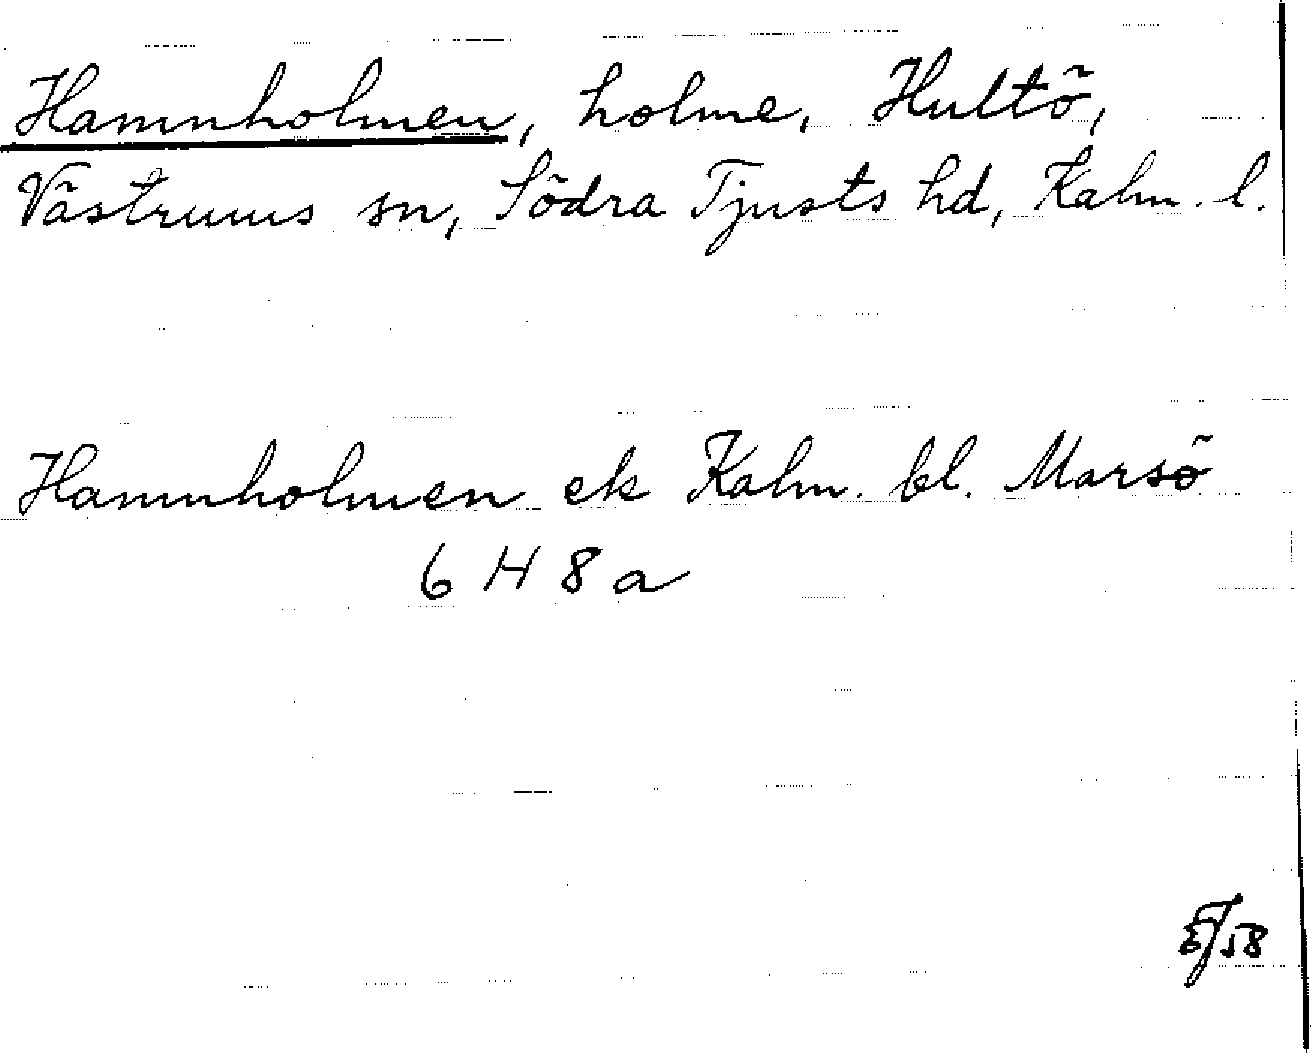 Hamnholmen, holme, Hultö,
Västrums sn, Södra Tjusts hd, Kalm. l.
Hamnholmen ek Kalm. bl. Marsö
6 H 8 a
58